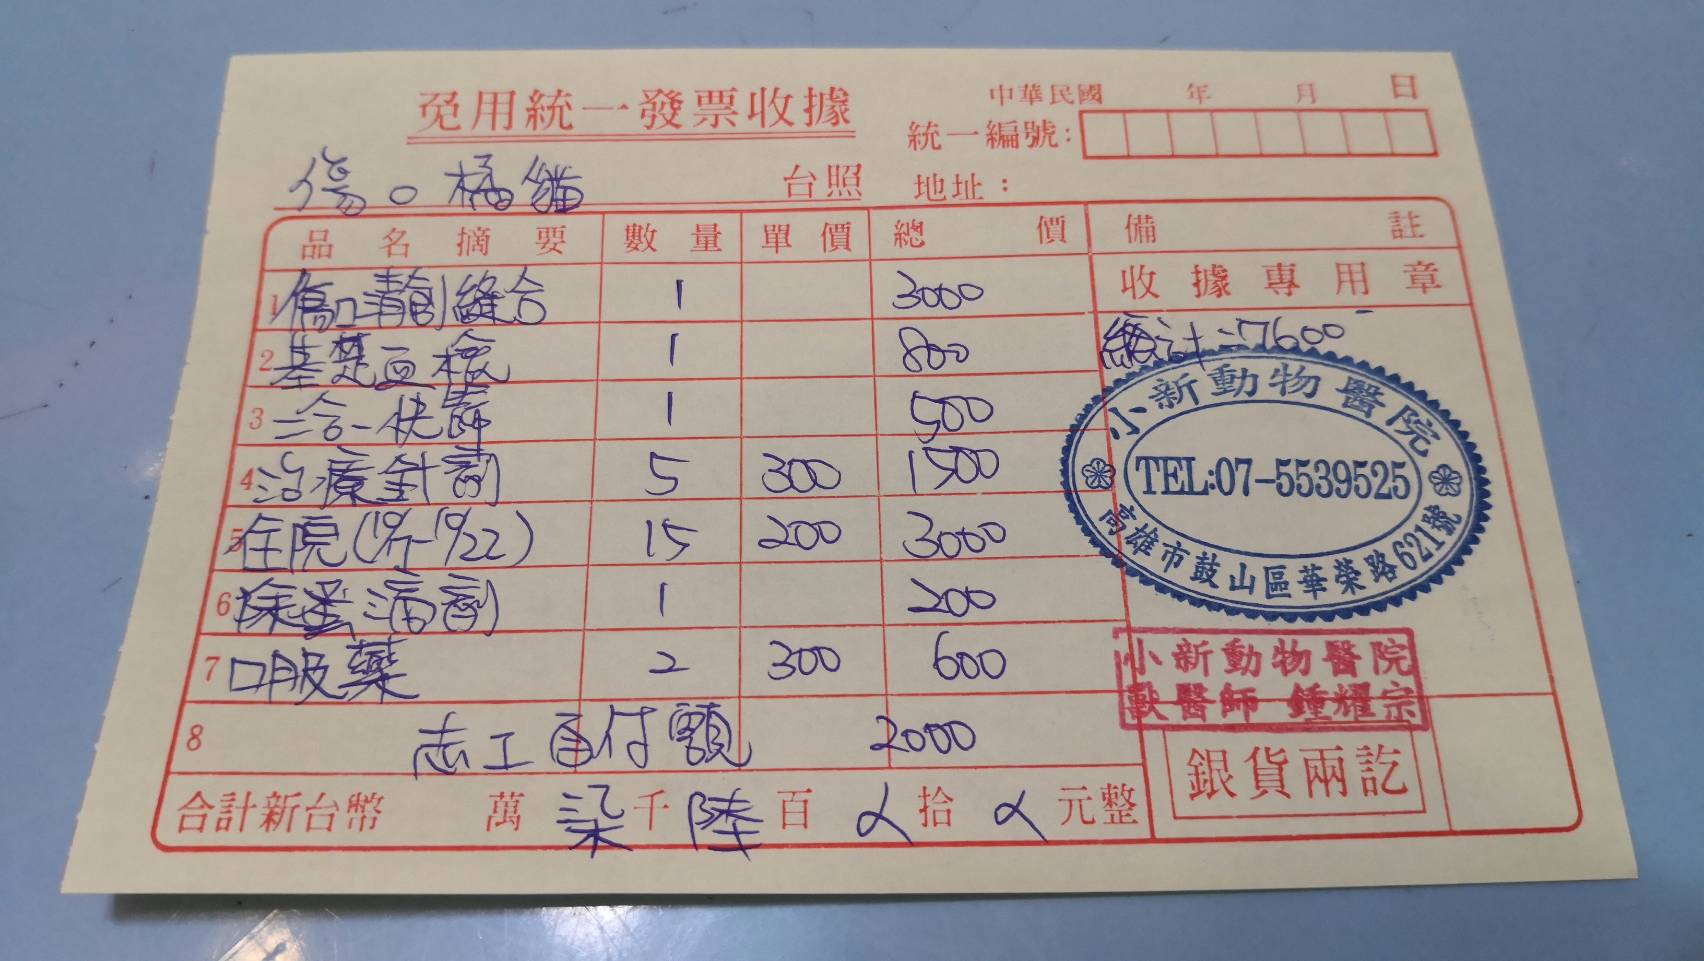 免用統一發票收據
中華民國 年 月 日
統一編號:
傷。橘貓 台照 地址：
品名摘要 數量 單價 總價 備註
收據專用章
1 傷口清創縫合 1 3000
總計=7600
2 基楚血檢 1 800
3 三合一快篩 1 500
4 治療針劑 5 300 1500
5 住院(10/7-10/22) 15 200 3000
6 除蚤滴劑 1 200
7 口服藥 2 300 600
8 志工自付額 2000
合計新台幣 萬 柒 千 陸 百 拾 元整
小新動物醫院
TEL:07-5539525
高雄市鼓山區華榮路621號
小新動物醫院
獸醫師 鍾耀宗
銀貨兩訖